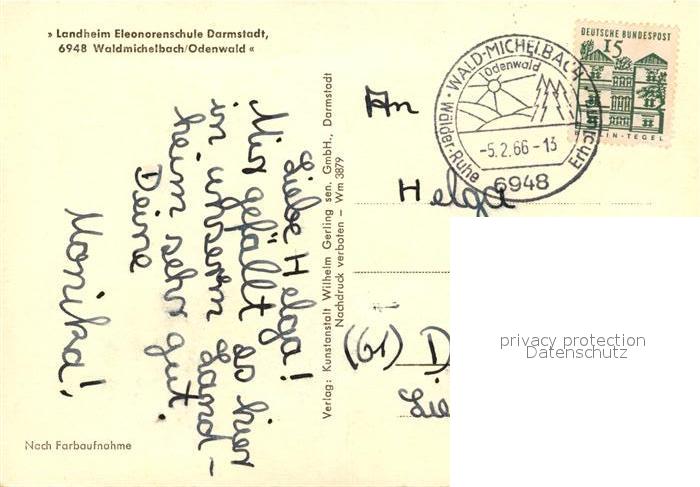 » Landheim Eleonorenschule Darmstadt,
6948 Waldmichelbach/Odenwald «
Liebe Helga!
Mir gefällt es hier
in unserm Land-
heim sehr gut.
Deine
Monika!
Nach Farbaufnahme
Verlag: Kunstanstalt Wilhelm Gerling sen. GmbH., Darmstadt
Nachdruck verboten – Wm 3879
WALD-MICHELBACH
Odenwald
-5.2.66-13
Wälder·Ruhe
6948
DEUTSCHE BUNDESPOST
15
BERLIN-TEGEL
An
Helga
(61) D
Lie
privacy protection
Datenschutz